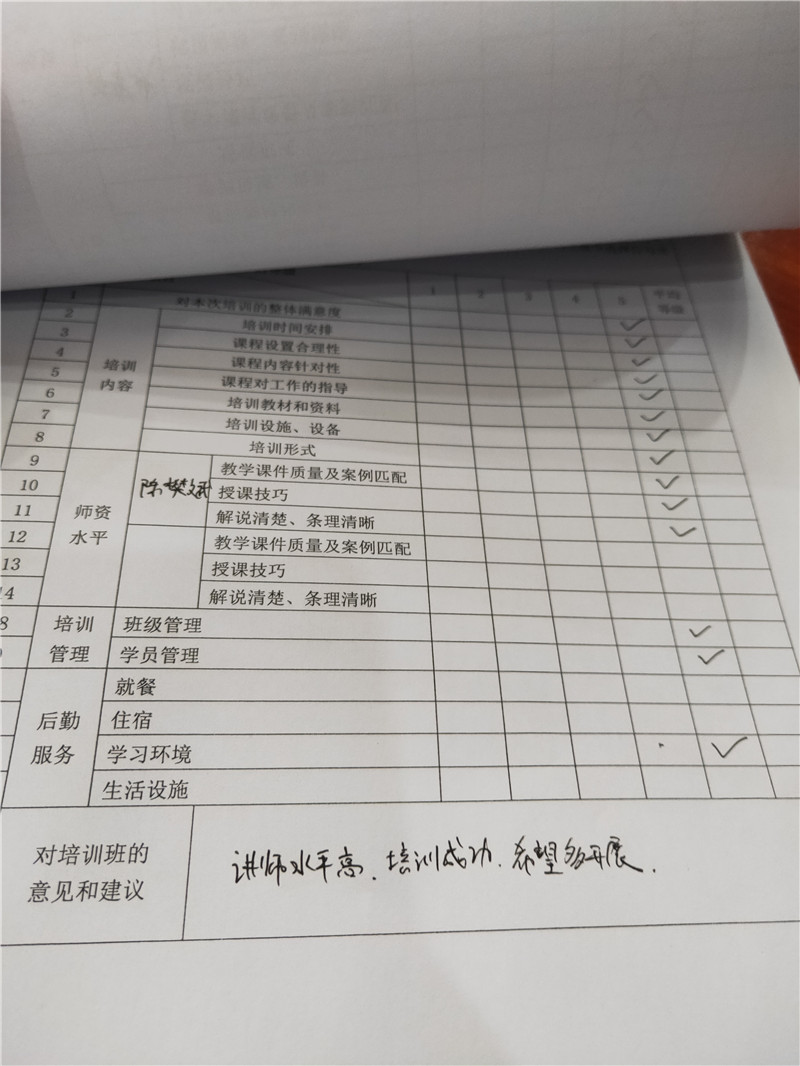 1 对本次培训的整体满意度 1 2 3 4 5 平均等级
2 培训时间安排 ✓
3 课程设置合理性 ✓
4 培训内容 课程内容针对性 ✓
5 课程对工作的指导 ✓
6 培训教材和资料 ✓
7 培训设施、设备 ✓
8 培训形式 ✓
9 教学课件质量及案例匹配 ✓
10 师资水平 陈樊斌 授课技巧 ✓
11 解说清楚、条理清晰 ✓
12 教学课件质量及案例匹配
13 授课技巧
14 解说清楚、条理清晰
8 培训管理 班级管理 ✓
学员管理 ✓
就餐
后勤服务 住宿
学习环境 ✓
生活设施
对培训班的
意见和建议
讲师水平高、培训成功、希望多开展.